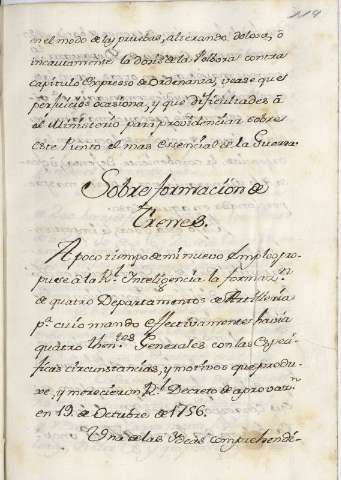 119
en el modo de las pruebas, alterando dolosa, ò
incautamente la dosis de la Polbora contra
capitulo expreso de Ordenanza, vease que
perjuicios ocasiona, y que dificultades à
el Ministerio para providenciar sobre
este punto el mas essencial de la Guerra
Sobre formacion de
Trenes.
A poco tiempo de mi nuevo Empleo pro-
puse à la R.l Inteligencia la formaz.n
de quatro Departamentos de Artilleria
p.a cuio mando effectivamente havia
quatro Then.tes Generales con las Especi-
ficas circunstancias, y motivos que produ-
xe, y merecieron R.l Decreto de aprovaz.n
en 19 de Octubre de 1756.
Una de las Ideas comprehendi-